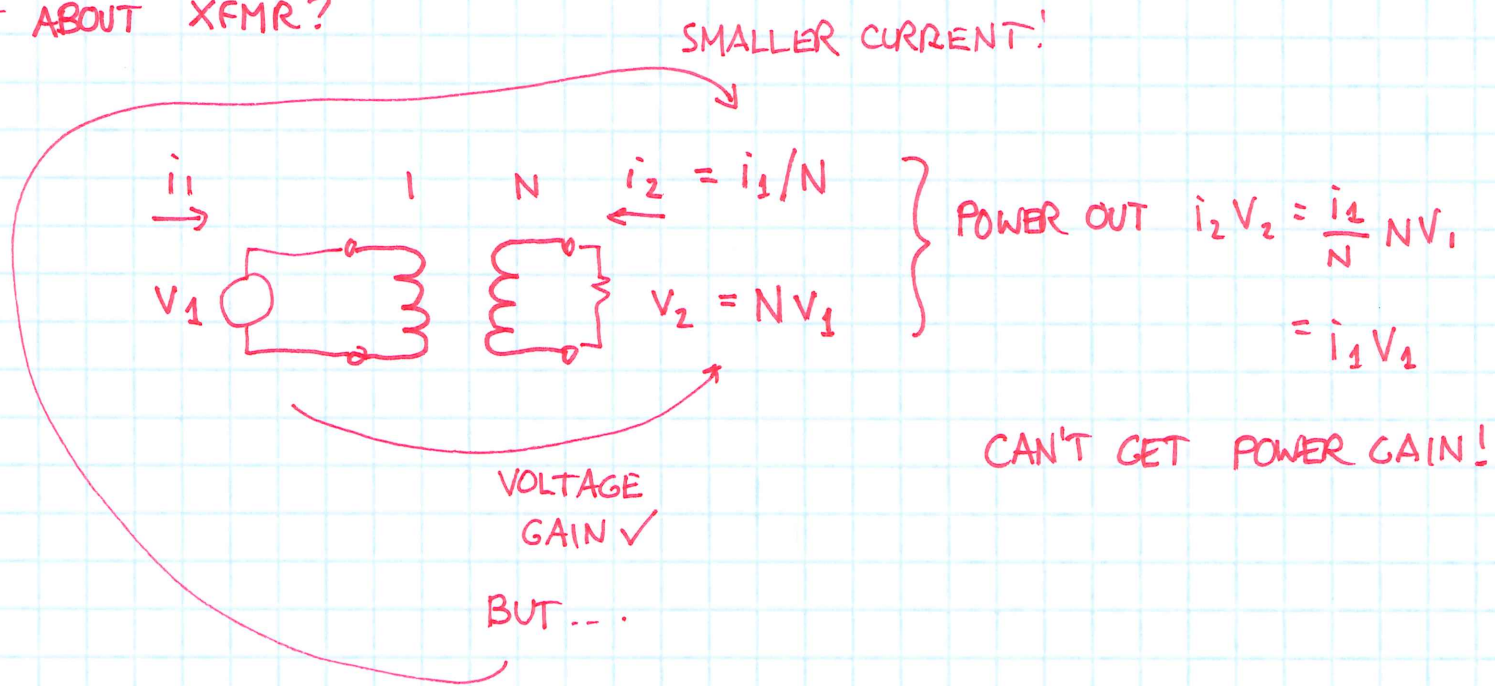 ABOUT XFMR?
SMALLER CURRENT!
i1 1 N i2 = i1/N
V1 V2 = NV1
POWER OUT i2 V2 = i1/N NV1
= i1 V1
CAN'T GET POWER GAIN!
VOLTAGE
GAIN ✓
BUT....